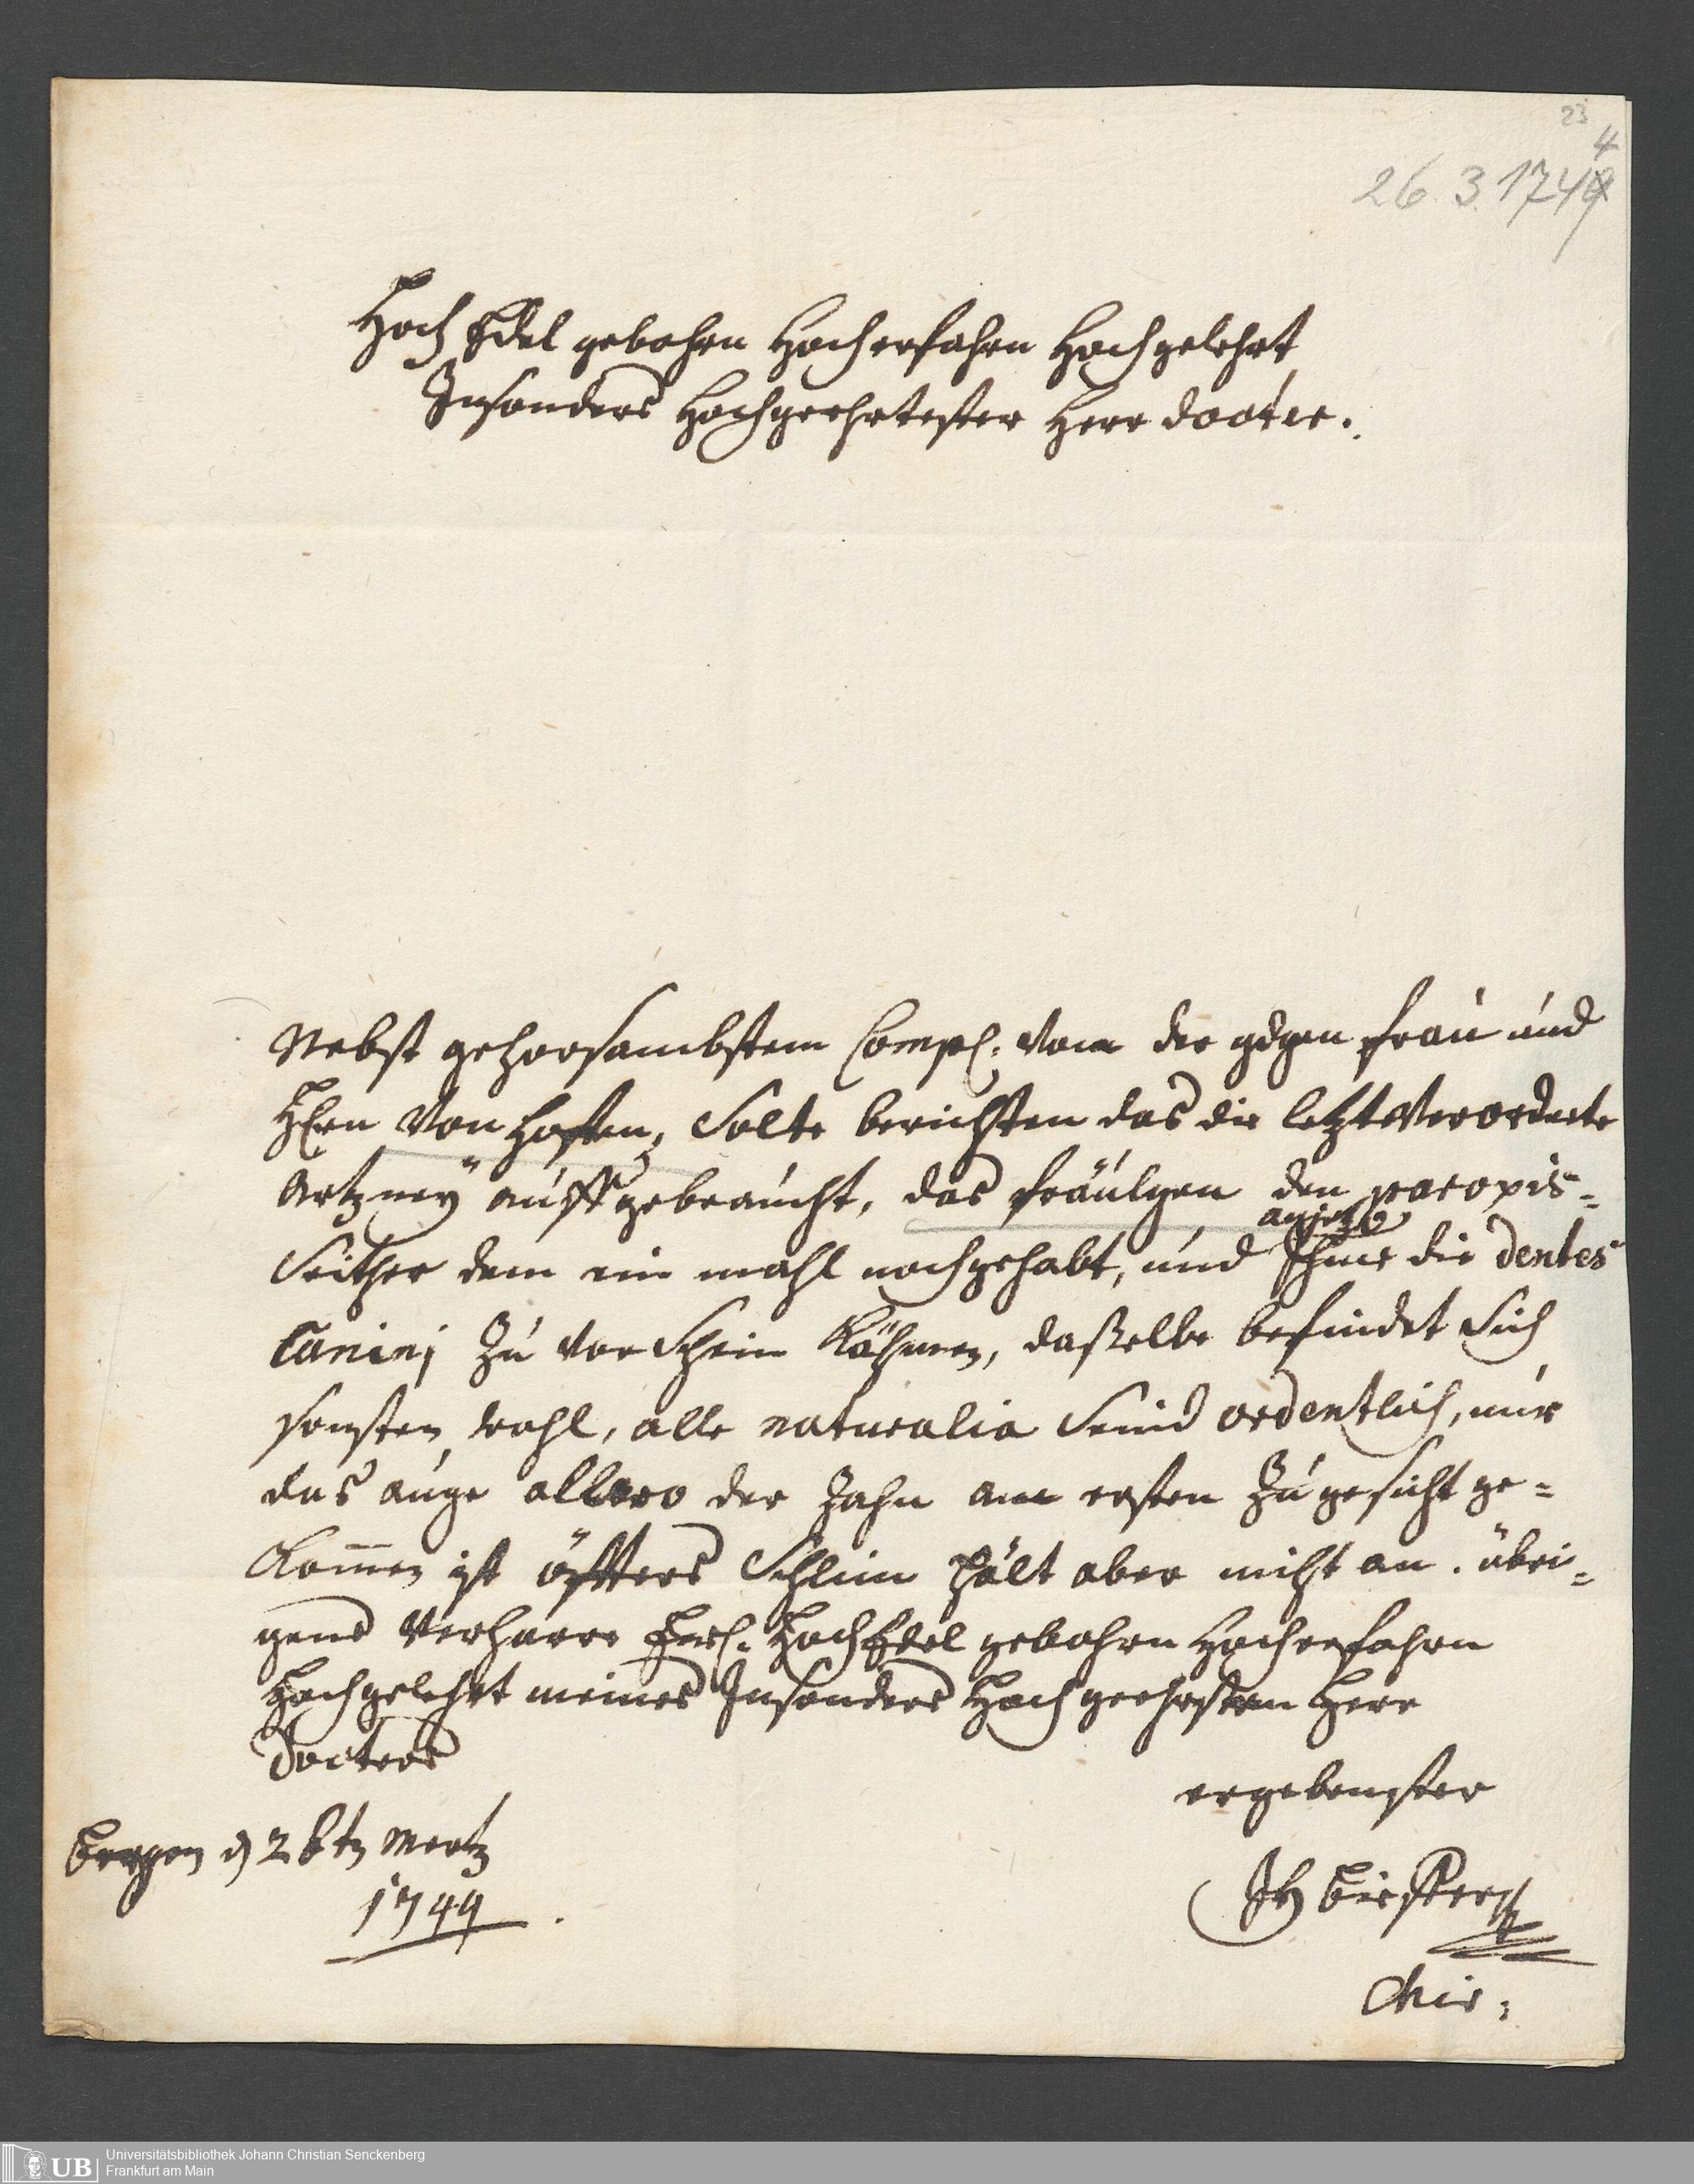 23
4
26. 3. 1749
Hoch Edel gebohrn Hocherfahrn Hochgelehrt
Insonders Hochgeehrtester Herr docter.
Nebst gehorsambstem Compl: von der gdgen frau und
HErn von hosten, Solte berichten das die letzt verordnete
Artzney auff gebraucht, das fräulgen den paroxis=
anjetzo
Seither dem ein mahl noch gehabt, und Ihme die dentes
Caninj zu vor Schein Kähmen, dasselbe befindet Sich
sonsten wohl, alle naturalia Seind ordentlich, nur
das auge allwo der Zahn am ersten zu gesicht ge=
Kommen ist öffters Schlim hält aber nicht an. übri=
gens verharre Ewl. HochEdel gebohrn Hocherfahrn
Hochgelehrt meines Insonders Hochgeehrsten Herr
Docters
ergebenster
Bergen d 26tn Mertz
1744.
JH
Chir:
UB
Universitätsbibliothek Johann Christian Senckenberg
Frankfurt am Main